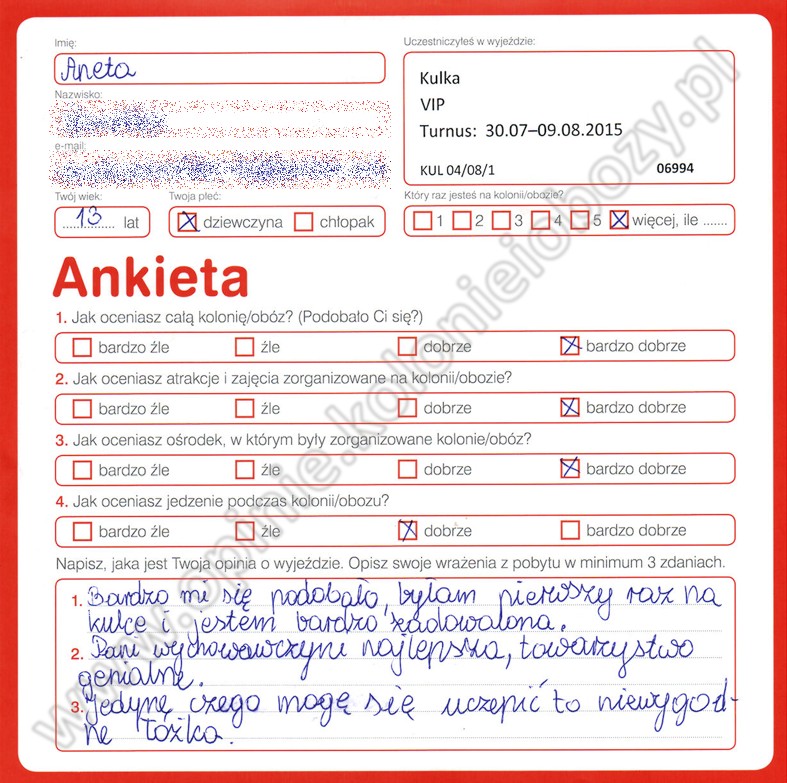 Imię:
Aneta
Nazwisko:
e-mail:
Twój wiek:
13 lat
Twoja płeć:
dziewczyna chłopak
Uczestniczyłeś w wyjeździe:
Kulka
VIP
Turnus: 30.07–09.08.2015
KUL 04/08/1 06994
Który raz jesteś na kolonii/obozie?
1 2 3 4 5 więcej, ile .......
Ankieta
1. Jak oceniasz całą kolonię/obóz? (Podobało Ci się?)
bardzo źle źle dobrze bardzo dobrze
2. Jak oceniasz atrakcje i zajęcia zorganizowane na kolonii/obozie?
bardzo źle źle dobrze bardzo dobrze
3. Jak oceniasz ośrodek, w którym były zorganizowane kolonie/obóz?
bardzo źle źle dobrze bardzo dobrze
4. Jak oceniasz jedzenie podczas kolonii/obozu?
bardzo źle źle dobrze bardzo dobrze
Napisz, jaka jest Twoja opinia o wyjeździe. Opisz swoje wrażenia z pobytu w minimum 3 zdaniach.
1. Bardzo mi się podobało, byłam pierwszy raz na
kulce i jestem bardzo zadowalona.
2. Pani wychowawczyni najlepsza, towarzystwo
genialne.
3. Jedynę czego mogę się uczepić to niewygod-
ne łóżka.
www.opinie.kolonieiobozy.pl